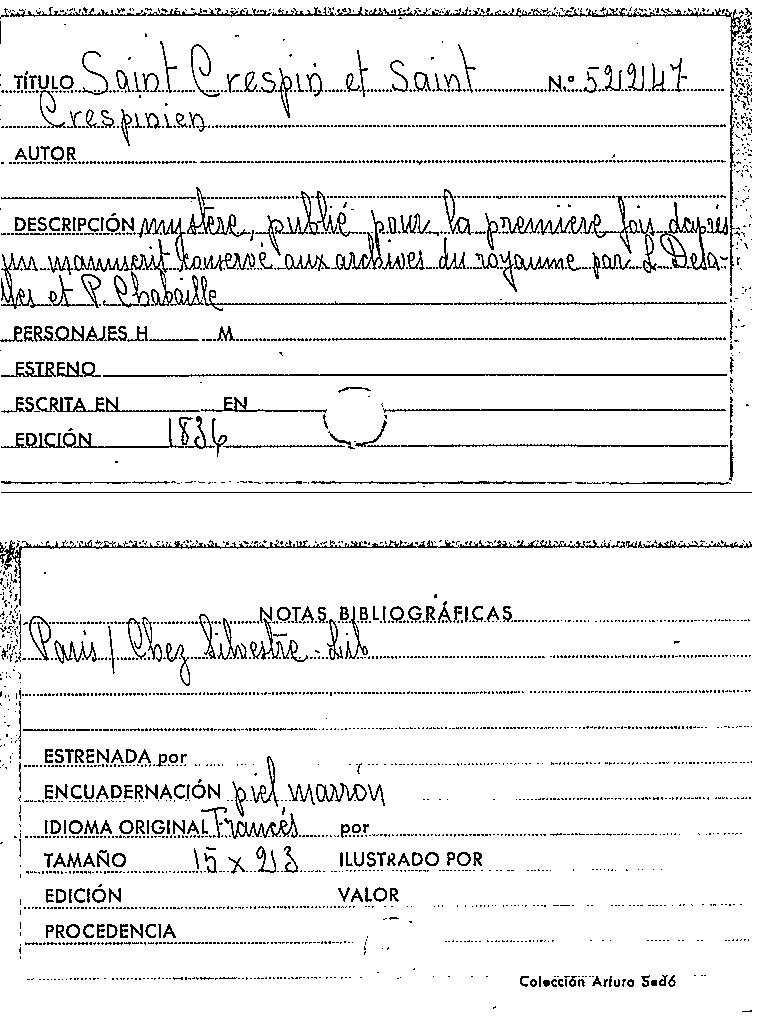 TÍTULO Saint Crespin et Saint N.º 52247
Crespinien
AUTOR
DESCRIPCIÓN mystère, publié pour la première fois daprés
un manuscrit conservé aux archives du royaume par L. Dessa-
lles et P. Chabaille
PERSONAJES H M
ESTRENO
ESCRITA EN EN
EDICIÓN 1836
NOTAS BIBLIOGRÁFICAS
Paris / Chez Silvestre - Lib
ESTRENADA por
ENCUADERNACIÓN piel marrón
IDIOMA ORIGINAL Francés por
TAMAÑO 15 x 23 ILUSTRADO POR
EDICIÓN VALOR
PROCEDENCIA
Colección Arturo Sedó